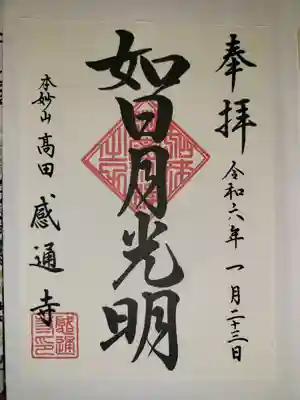 奉拝
令和六年 一月二十三日
如日月光明
本妙山
高田
感通寺